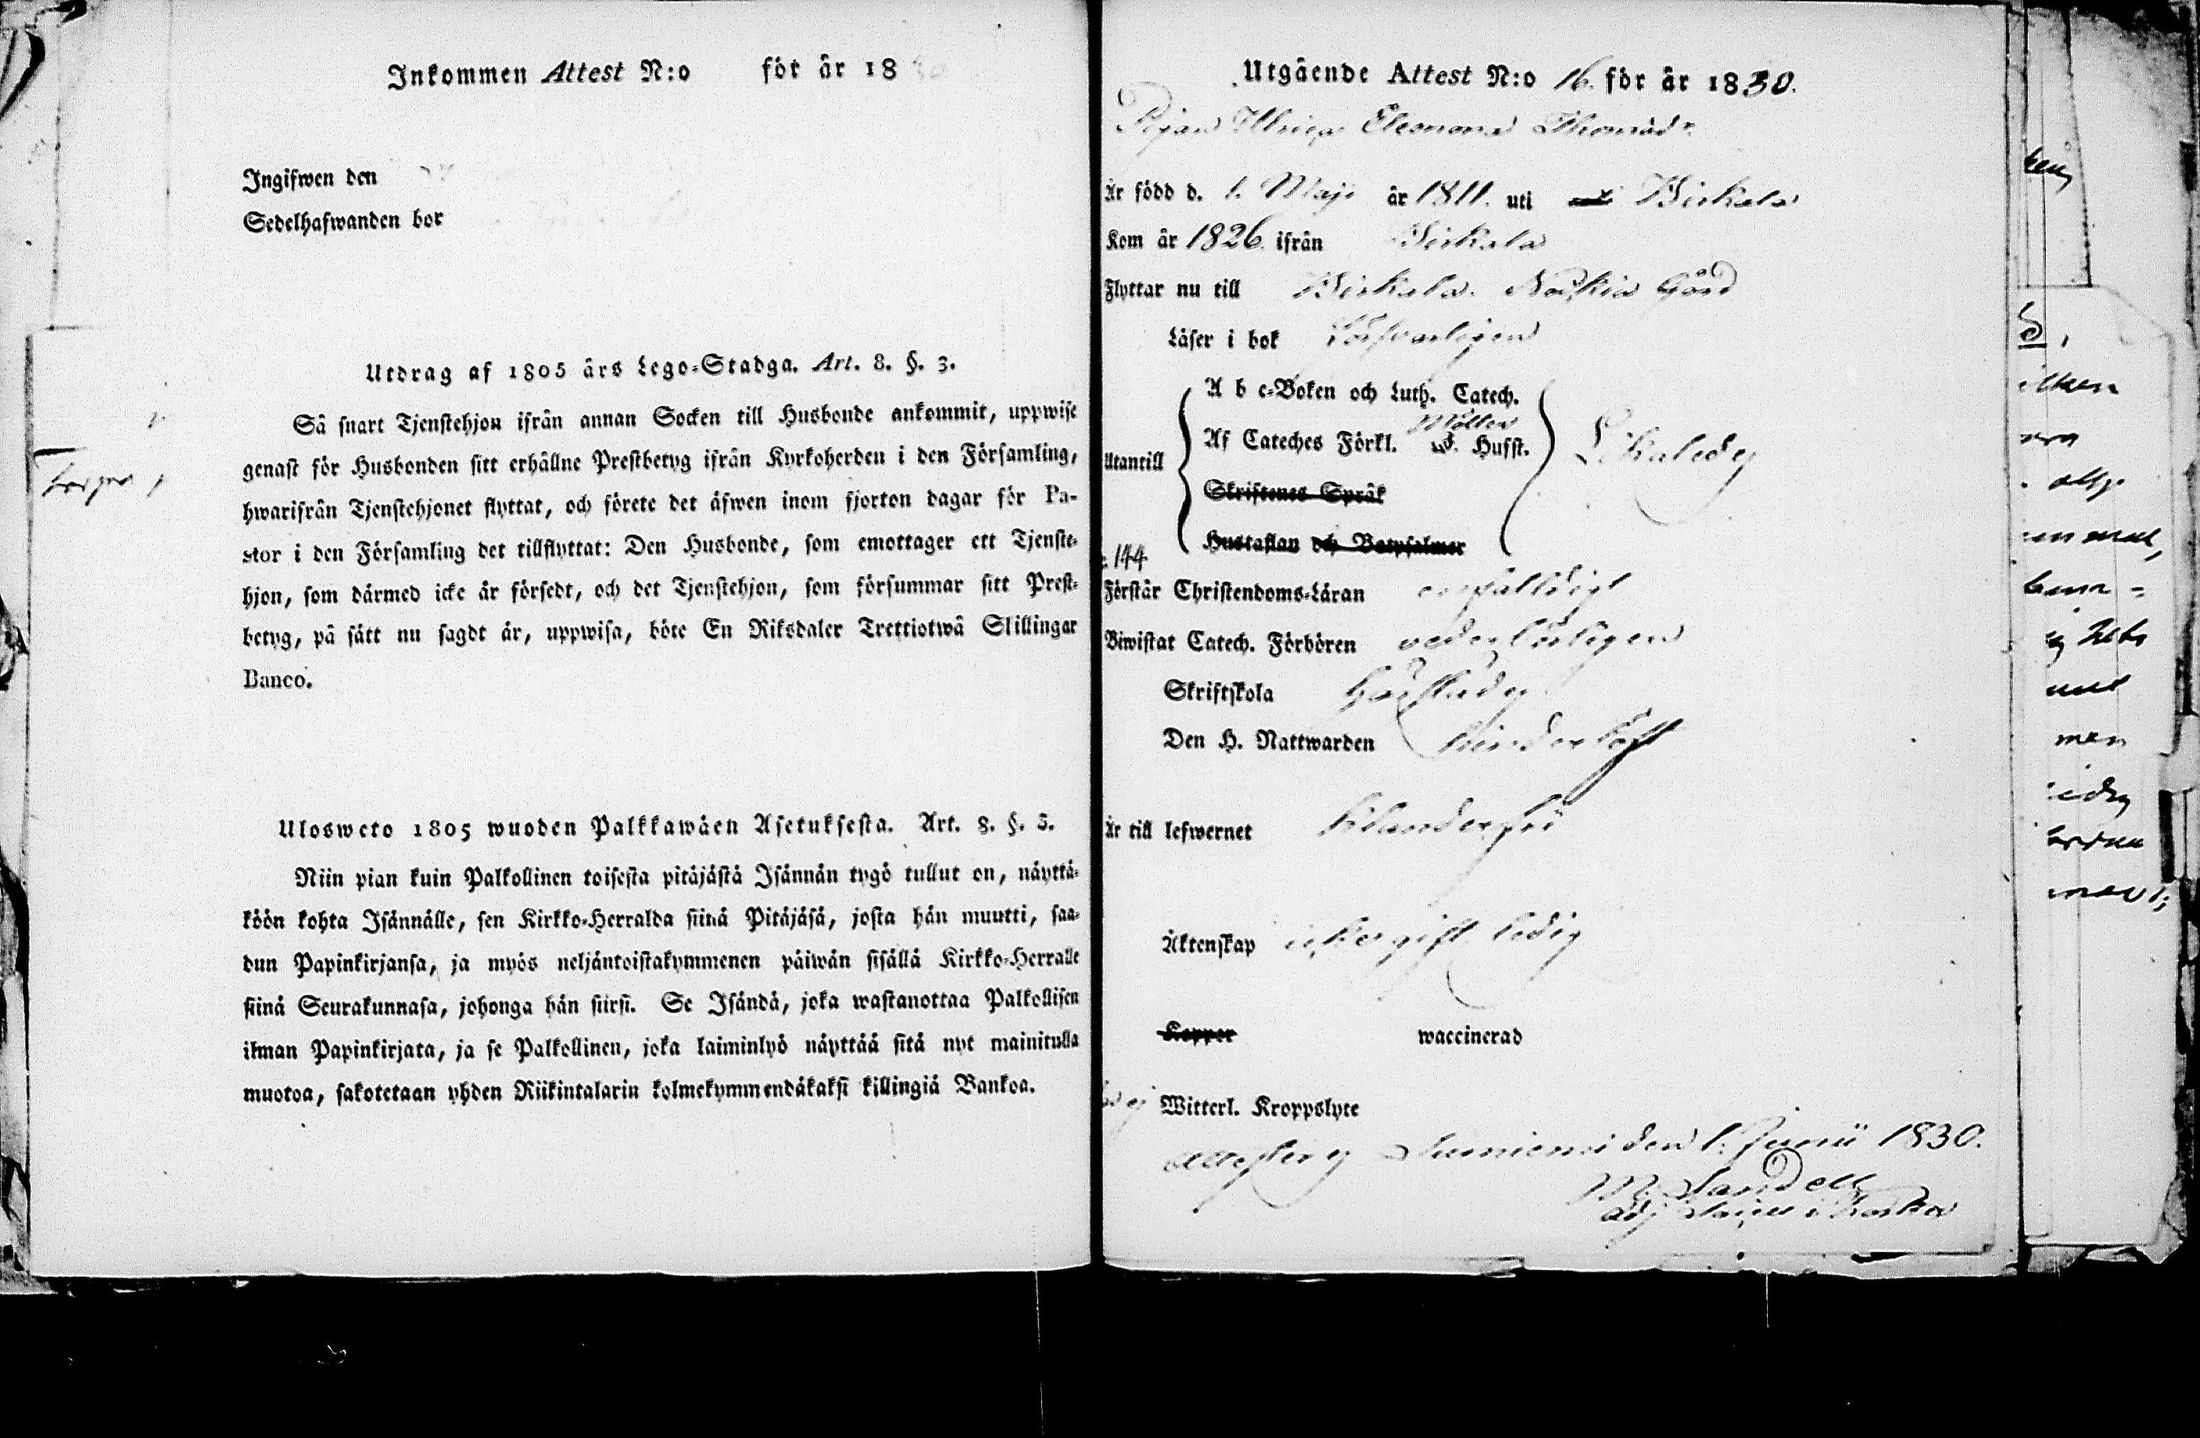 Inkommen Attest N:o för år 18
Ingifwen den
Sedelhafwanden bor
Utdrag af 1805 års Lego-Stadga. Art. 8. §. 3.
Så snart Tjenstehjon ifrån annan Socken till Husbonde ankommit, uppwise
genast för Husbonden sitt erhållne Prestbetyg ifrån Kyrkoherden i den Församling,
hwarifrån Tjenstehjonet flyttat, och förete det äfwen inom fjorton dagar för Pa-
stor i den Församling det tillflyttat: Den Husbonde, som emottager ett Tjenste-
hjon, som därmed icke är försedt, och det Tjenstehjon, som försummar sitt Prest-
betyg, på sätt nu sagdt är, uppwisa, böte En Riksdaler Trettiotwå Skillingar
Banco.
Ulosweto 1805 wuoden Palkkawäen Asetuksesta. Art. 8. §. 3.
Niin pian kuin Palkollinen toisesta pitäjästä Isännän tygö tullut on, näyttä-
köön kohta Isännälle, sen Kirkko-Herralda siinä Pitäjäsä, josta hän muutti, saa-
dun Papinkirjansa, ja myös neljäntoistakymmenen päiwän sisällä Kirkko-Herralle
siinä Seurakunnasa, johonga hän siirsi. Se Isändä, joka wastanottaa Palkollisen
ilman Papinkirjata, ja se Palkollinen, joka laiminlyö näyttää sitä nyt mainitulla
muotoa, sakotetaan yhden Riikintalarin kolmekymmendäkaksi killingiä Bankoa.
Utgående Attest N:o 16. för år 1830.
Pigan Ulrica Eleonora Thomasd:r
Är född d. 1. Maji år 1811. uti Birkala
Kom år 1826 ifrån Birkala
Flyttar nu till Birkala. Nockia Gård
Läser i bok Försvarligen
A b c-Boken och Luth. Catech.
Af Cateches Förkl. Möllers o. Hufst.
Utantill
Skriftenes Språk
Hustaflan och Botpsalmer
144
Förstår Christendoms-Läran enfalldigt
Biwistat Catech. Förhören vederbörligen
Skriftskola
Den H. Nattwarden
Är till lefwernet klanderfri
Äktenskap icke gift ledig
Kopper waccinerad
Witterl. Kroppslyte
attesterg den 1. Junii 1830.
M. Sandell